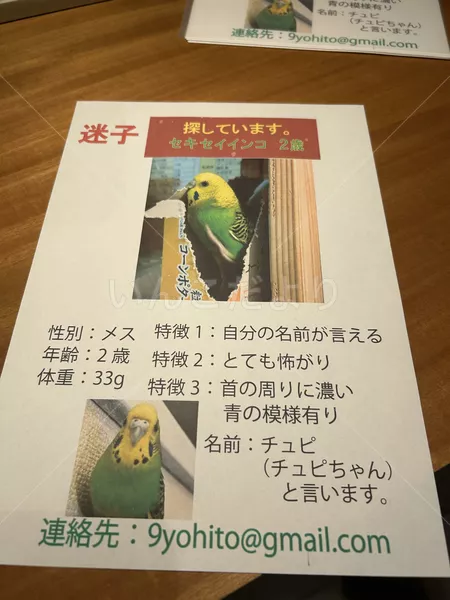 青の模様有り
名前:チュピ
(チュピちゃん)
と言います。
連絡先:9yohito@gmail.com
迷子
探しています。
セキセイインコ 2歳
コーンポタ
性別:メス
年齢:2歳
体重:33g
特徴1:自分の名前が言える
特徴2:とても怖がり
特徴3:首の周りに濃い
青の模様有り
名前:チュピ
(チュピちゃん)
と言います。
連絡先:9yohito@gmail.com
いんこだより